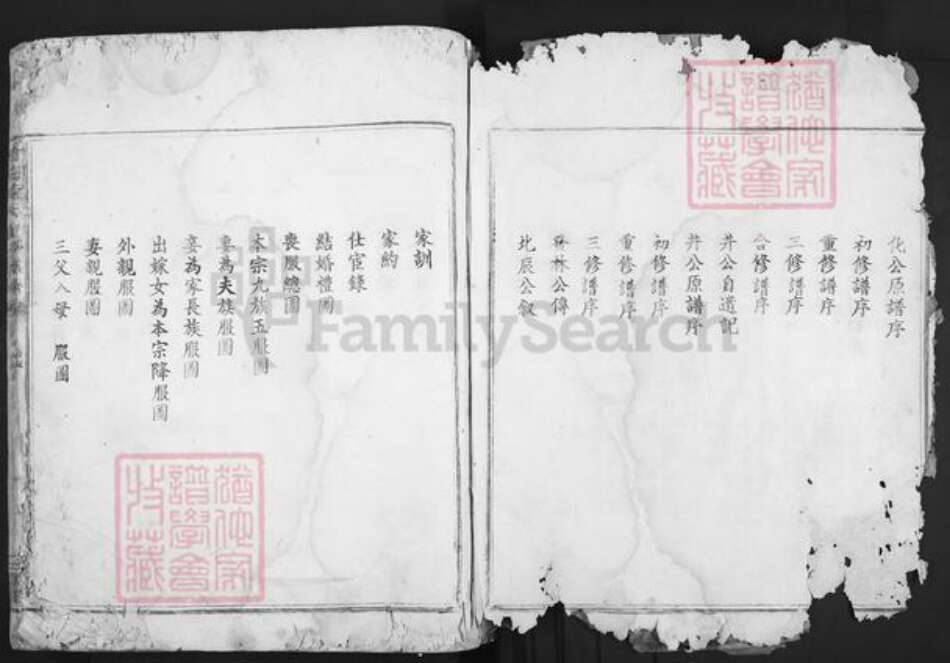 化公原譜序
初修譜序
重修譜序
三修譜序
合修譜序
井公自遺記
井公原譜序
初修譜序
重修譜序
三修譜序
林公傳
北辰公敘
家訓
家約
仕宦錄
結婚禮圖
喪服總圖
本宗九族五服圖
妻為夫族服圖
妾為家長族服圖
出嫁女為本宗降服圖
外親服圖
妻親服圖
三父八母 服圖
FamilySearch
譜學會
收藏
譜學會
收藏